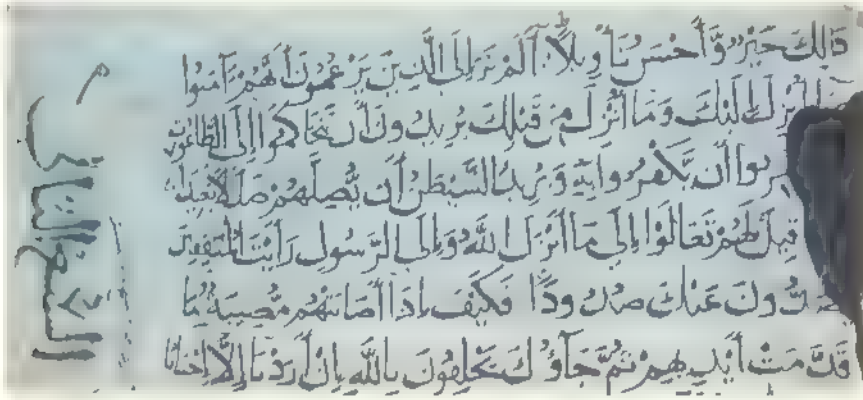 ذَٰلِكَ خَيْرٌ وَّأَحْسَنُ تَأْوِيلًا أَلَمْ تَرَ إِلَى الَّذِينَ يَزْعُمُونَ أَنَّهُمْ ءَامَنُوا
أُنْزِلَ إِلَيْكَ وَمَا أُنْزِلَ مِن قَبْلِكَ يُرِيدُونَ أَن يَتَحَاكَمُوا إِلَى الطَّاغُوتِ
أَن يَّكْفُرُوا بِهِ وَيُرِيدُ الشَّيْطَٰنُ أَن يُّضِلَّهُمْ ضَلَٰلًا بَعِيدًا
قِيلَ لَهُمْ تَعَالَوْا إِلَى مَا أَنْزَلَ اللَّهُ وَإِلَى الرَّسُولِ رَأَيْتَ الْمُنَٰفِقِينَ
يَصُدُّونَ عَنكَ صُدُودًا فَكَيْفَ إِذَا أَصَابَتْهُم مُّصِيبَةٌ بِمَا
قَدَّمَتْ أَيْدِيهِمْ ثُمَّ جَآءُوكَ يَحْلِفُونَ بِاللَّهِ إِنْ أَرَدْنَا إِلَّا إِحْسَانًا